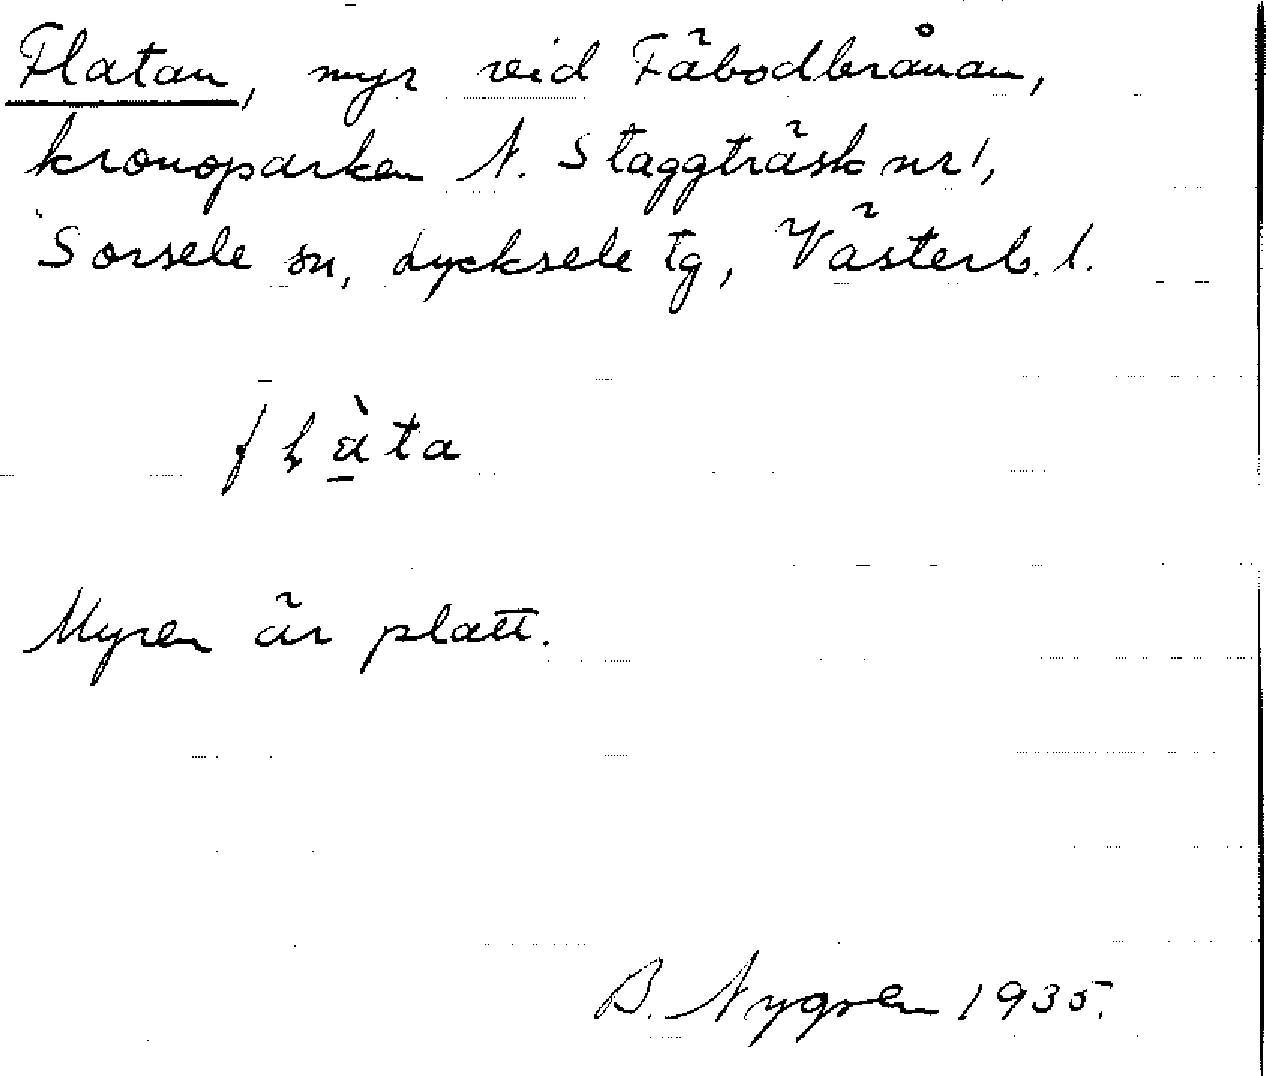 Flatan, myr vid Fäbodbrånan,
kronoparken N. Staggträsk nr 1,
Sorsele sn, Lycksele tg, Västerb. l.
flà̱ta
Myren är platt.
B. Nygren 1935.